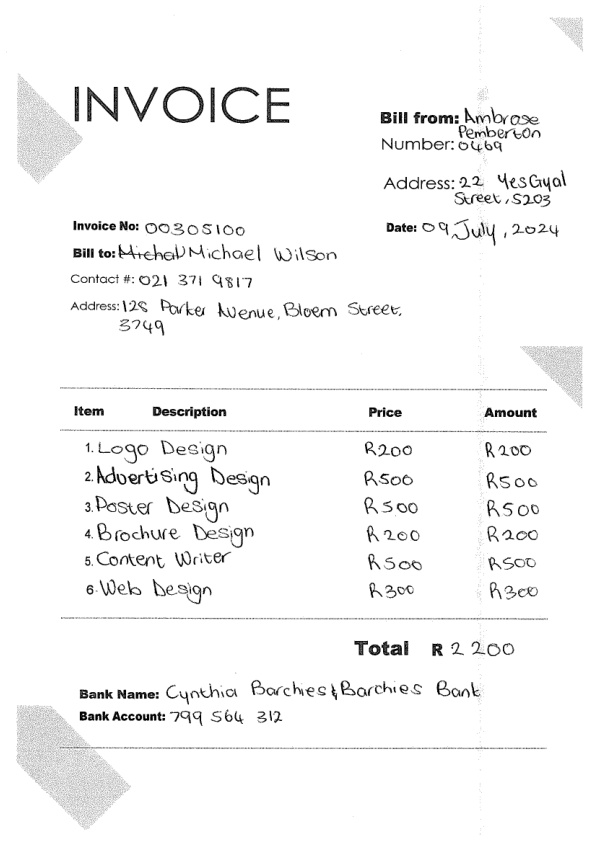 INVOICE
Bill from: Ambrose
Pemberton
Number: 0469
Address: 22 YesGyal
Street, 5203
Invoice No: 00305100
Date: 09 July, 2024
Bill to: Michal Michael Wilson
Contact #: 021 371 9817
Address: 128 Parker Avenue, Bloem Street,
3749
Item Description Price Amount
1. Logo Design R200 R200
2. Advertising Design R500 R500
3. Poster Design R500 R500
4. Brochure Design R200 R200
5. Content Writer R500 R500
6. Web Design R300 R300
Total R 2 200
Bank Name: Cynthia Barchies & Barchies Bank
Bank Account: 799 564 312